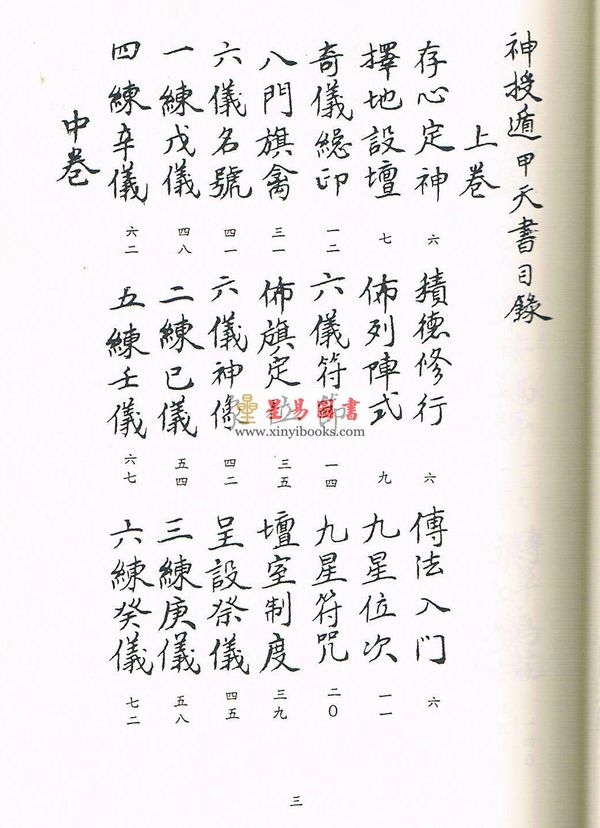 神授遁甲天書目錄
上卷
存心定神 六 積德修行 六 傳法入门 六
擇地設壇 七 佈列陣式 九 九星位次 一一
奇儀總印 一二 六儀符 一四 九星符咒 二〇
八門旗禽 三一 佈旗定 三五 壇室制度 三九
六儀名號 四一 六儀神像 四二 呈設祭儀 四五
一練戊儀 四八 二練已儀 五四 三練庚儀 五八
四練辛儀 六二 五練壬儀 六七 六練癸儀 七二
中卷
星易圖書
www.xinyibooks.com
三